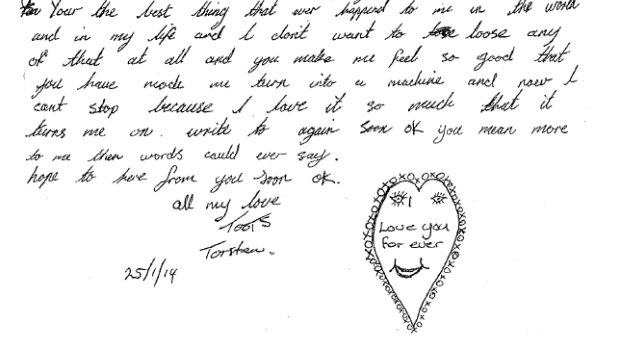 Your the best thing that ever happend to me in the world
and in my life and I dont want to loose any
of that at all and you make me feel so good that
you have made me turn into a machine and now I
cant stop because I love it so much that it
turns me on. write to again soon ok you mean more
to me then words could ever say.
hope to here from you soon ok.
all my love
Toots
Torsten.
25/1/14
Love you
for ever